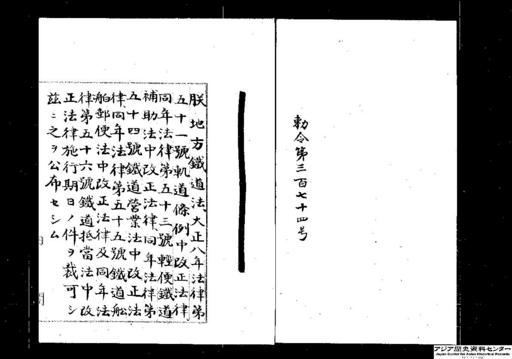 勅令第三百七十四号
朕地方鐵道法大正八年法律第
五十一號軌道條例中改正法律
同年法律第五十三號輕便鐵道
補助法中改正法律、同年法律第
五十四號鐵道營業法中改正法
律、同年法律第五十五號鐵道船
舶郵便法中改正法律及同年法
律第五十六號鐵道抵當法中改
正法律施行期日ノ件ヲ裁可シ
茲ニ之ヲ公布セシム
アジア歴史資料センター
Japan Center for Asian Historical Records